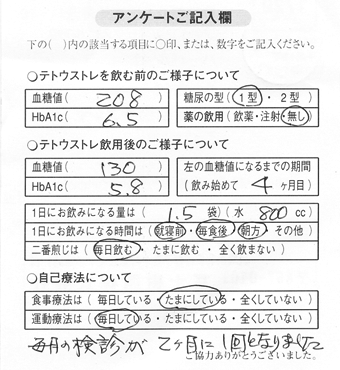 アンケートご記入欄
下の( )内の該当する項目に〇印、または、数字をご記入ください。
〇テトウストレを飲む前のご様子について
血糖値( 208 )
HbA1c( 6.5 )
糖尿の型(1型・2型)
薬の飲用(飲薬・注射・無し)
〇テトウストレ飲用後のご様子について
血糖値( 130 )
HbA1c( 5.8 )
左の血糖値になるまでの期間
(飲み始めて 4 ヶ月目)
1日にお飲みになる量は( 1.5 袋)(水 800 cc)
1日にお飲みになる時間は(就寝前・毎食後・朝方・その他)
二番煎じは(毎日飲む・たまに飲む・全く飲まない)
〇自己療法について
食事療法は(毎日している・たまにしている・全くしていない)
運動療法は(毎日している・たまにしている・全くしていない)
毎月の検診が2ヶ月に1回となりました
ご協力ありがとうございました。